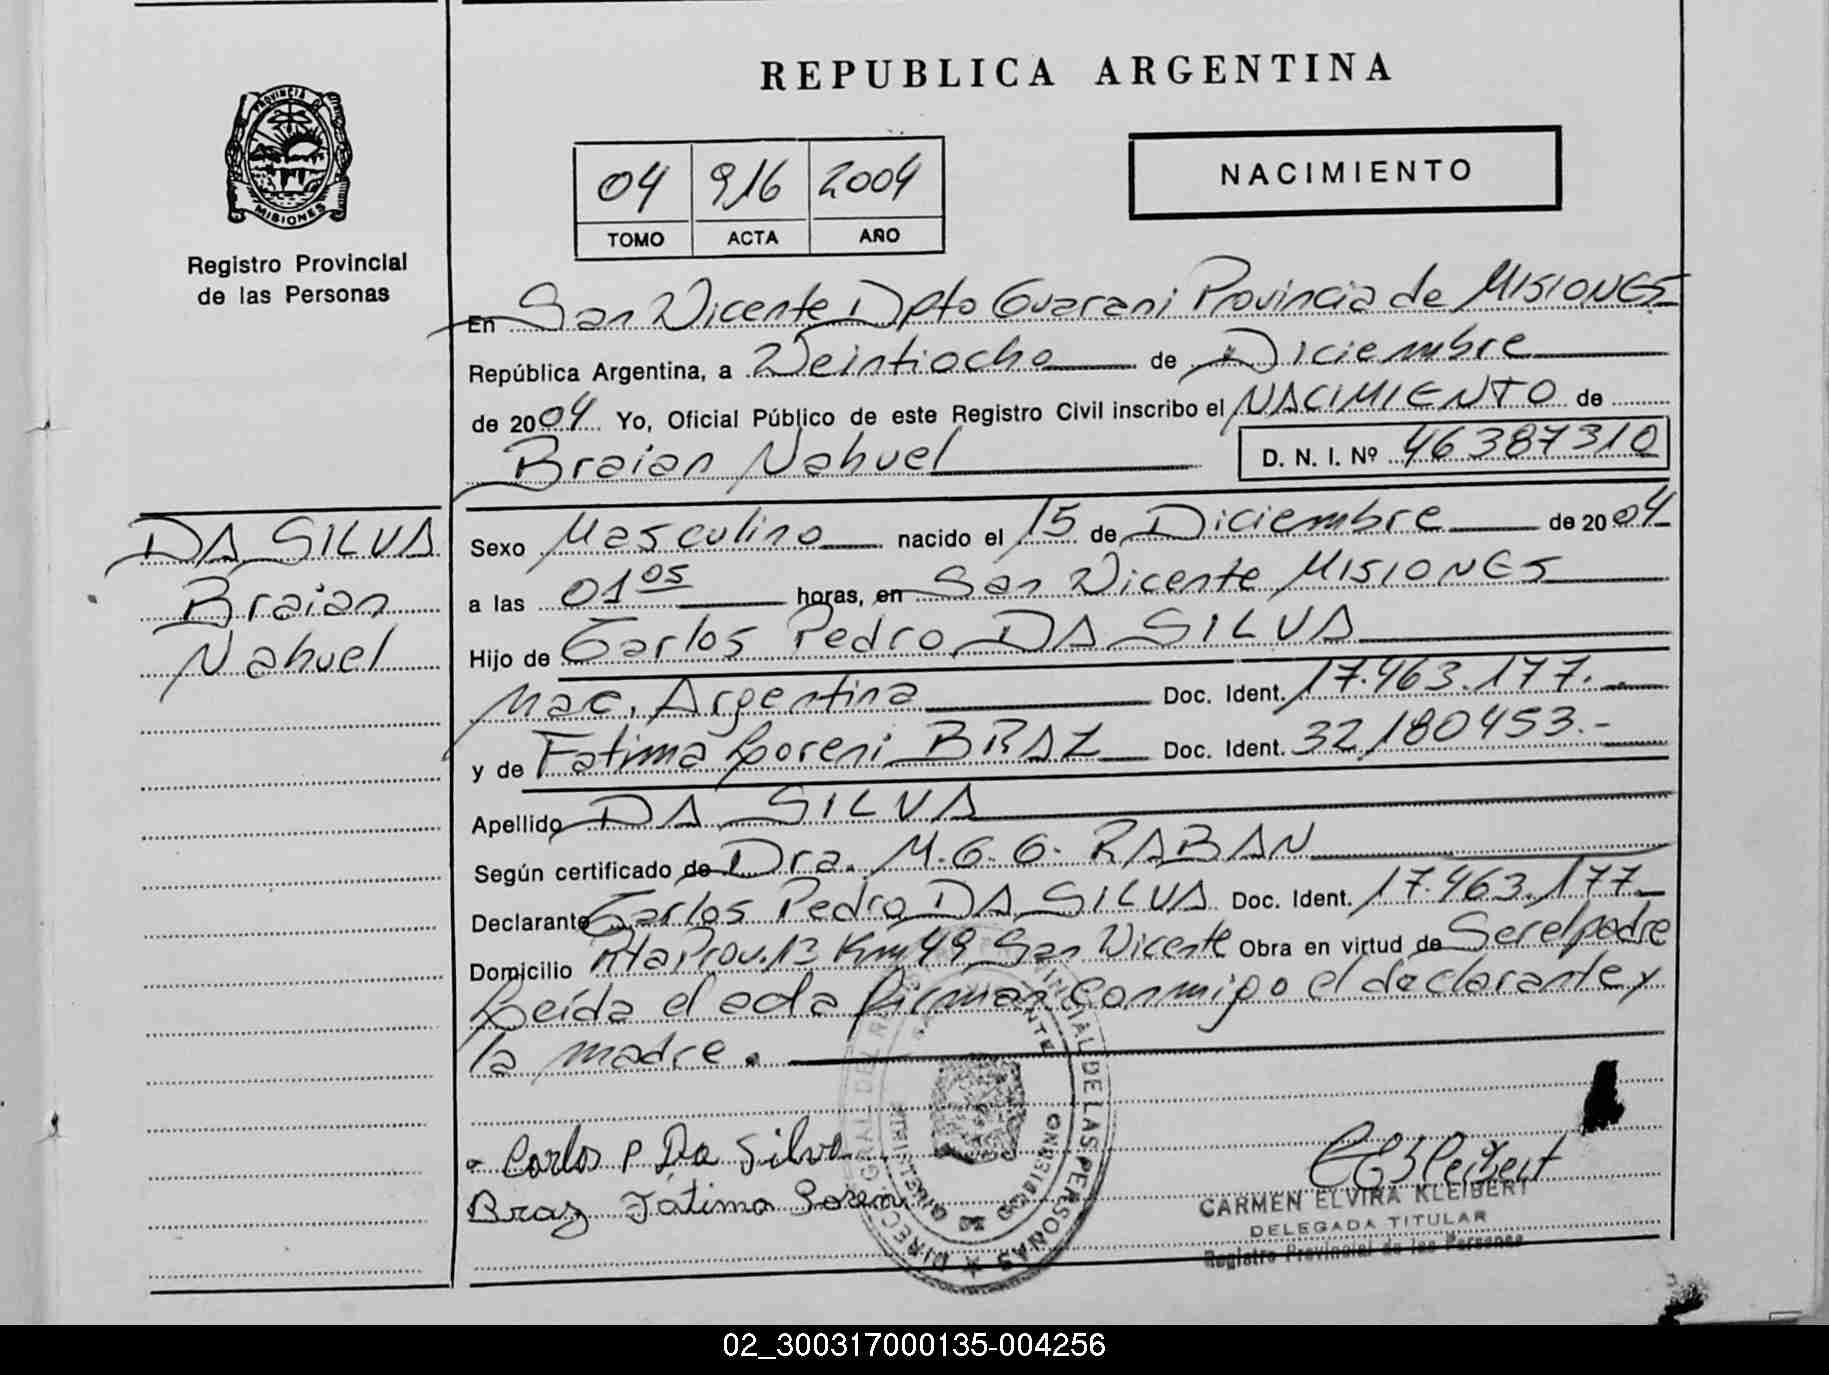 REPUBLICA ARGENTINA
PROVINCIA D MISIONES
Registro Provincial
de las Personas
04 916 2004
TOMO ACTA AÑO
NACIMIENTO
En San Vicente Dpto Guarani Provincia de MISIONES
República Argentina, a Veintiocho de Diciembre
de 2004 Yo, Oficial Público de este Registro Civil inscribo el NACIMIENTO de
Braian Nahuel D. N. I. Nº 46387310
DA SILVA
Braian
Nahuel
Sexo Masculino nacido el 15 de Diciembre de 2004
a las 01 05 horas, en San Vicente MISIONES
Hijo de Carlos Pedro DA SILVA
Nac. Argentina Doc. Ident. 17.463.177.-
y de Fatima Loreni BRAZ Doc. Ident. 32,180453.-
Apellido DA SILVA
Según certificado de Dra. M. G. G. RABAN
Declarante Carlos Pedro DA SILVA Doc. Ident. 17.463.177-
Domicilio Rta Prov. 13 Km 49 San Vicente Obra en virtud de Ser el padre
Leída el acta firman conmigo el declarante y
la madre.
Carlos P Da Silva
Braz Fátima Loreni
CARMEN ELVIRA KLEIBERT
DELEGADA TITULAR
Registro Provincial de las Personas
02_300317000135-004256